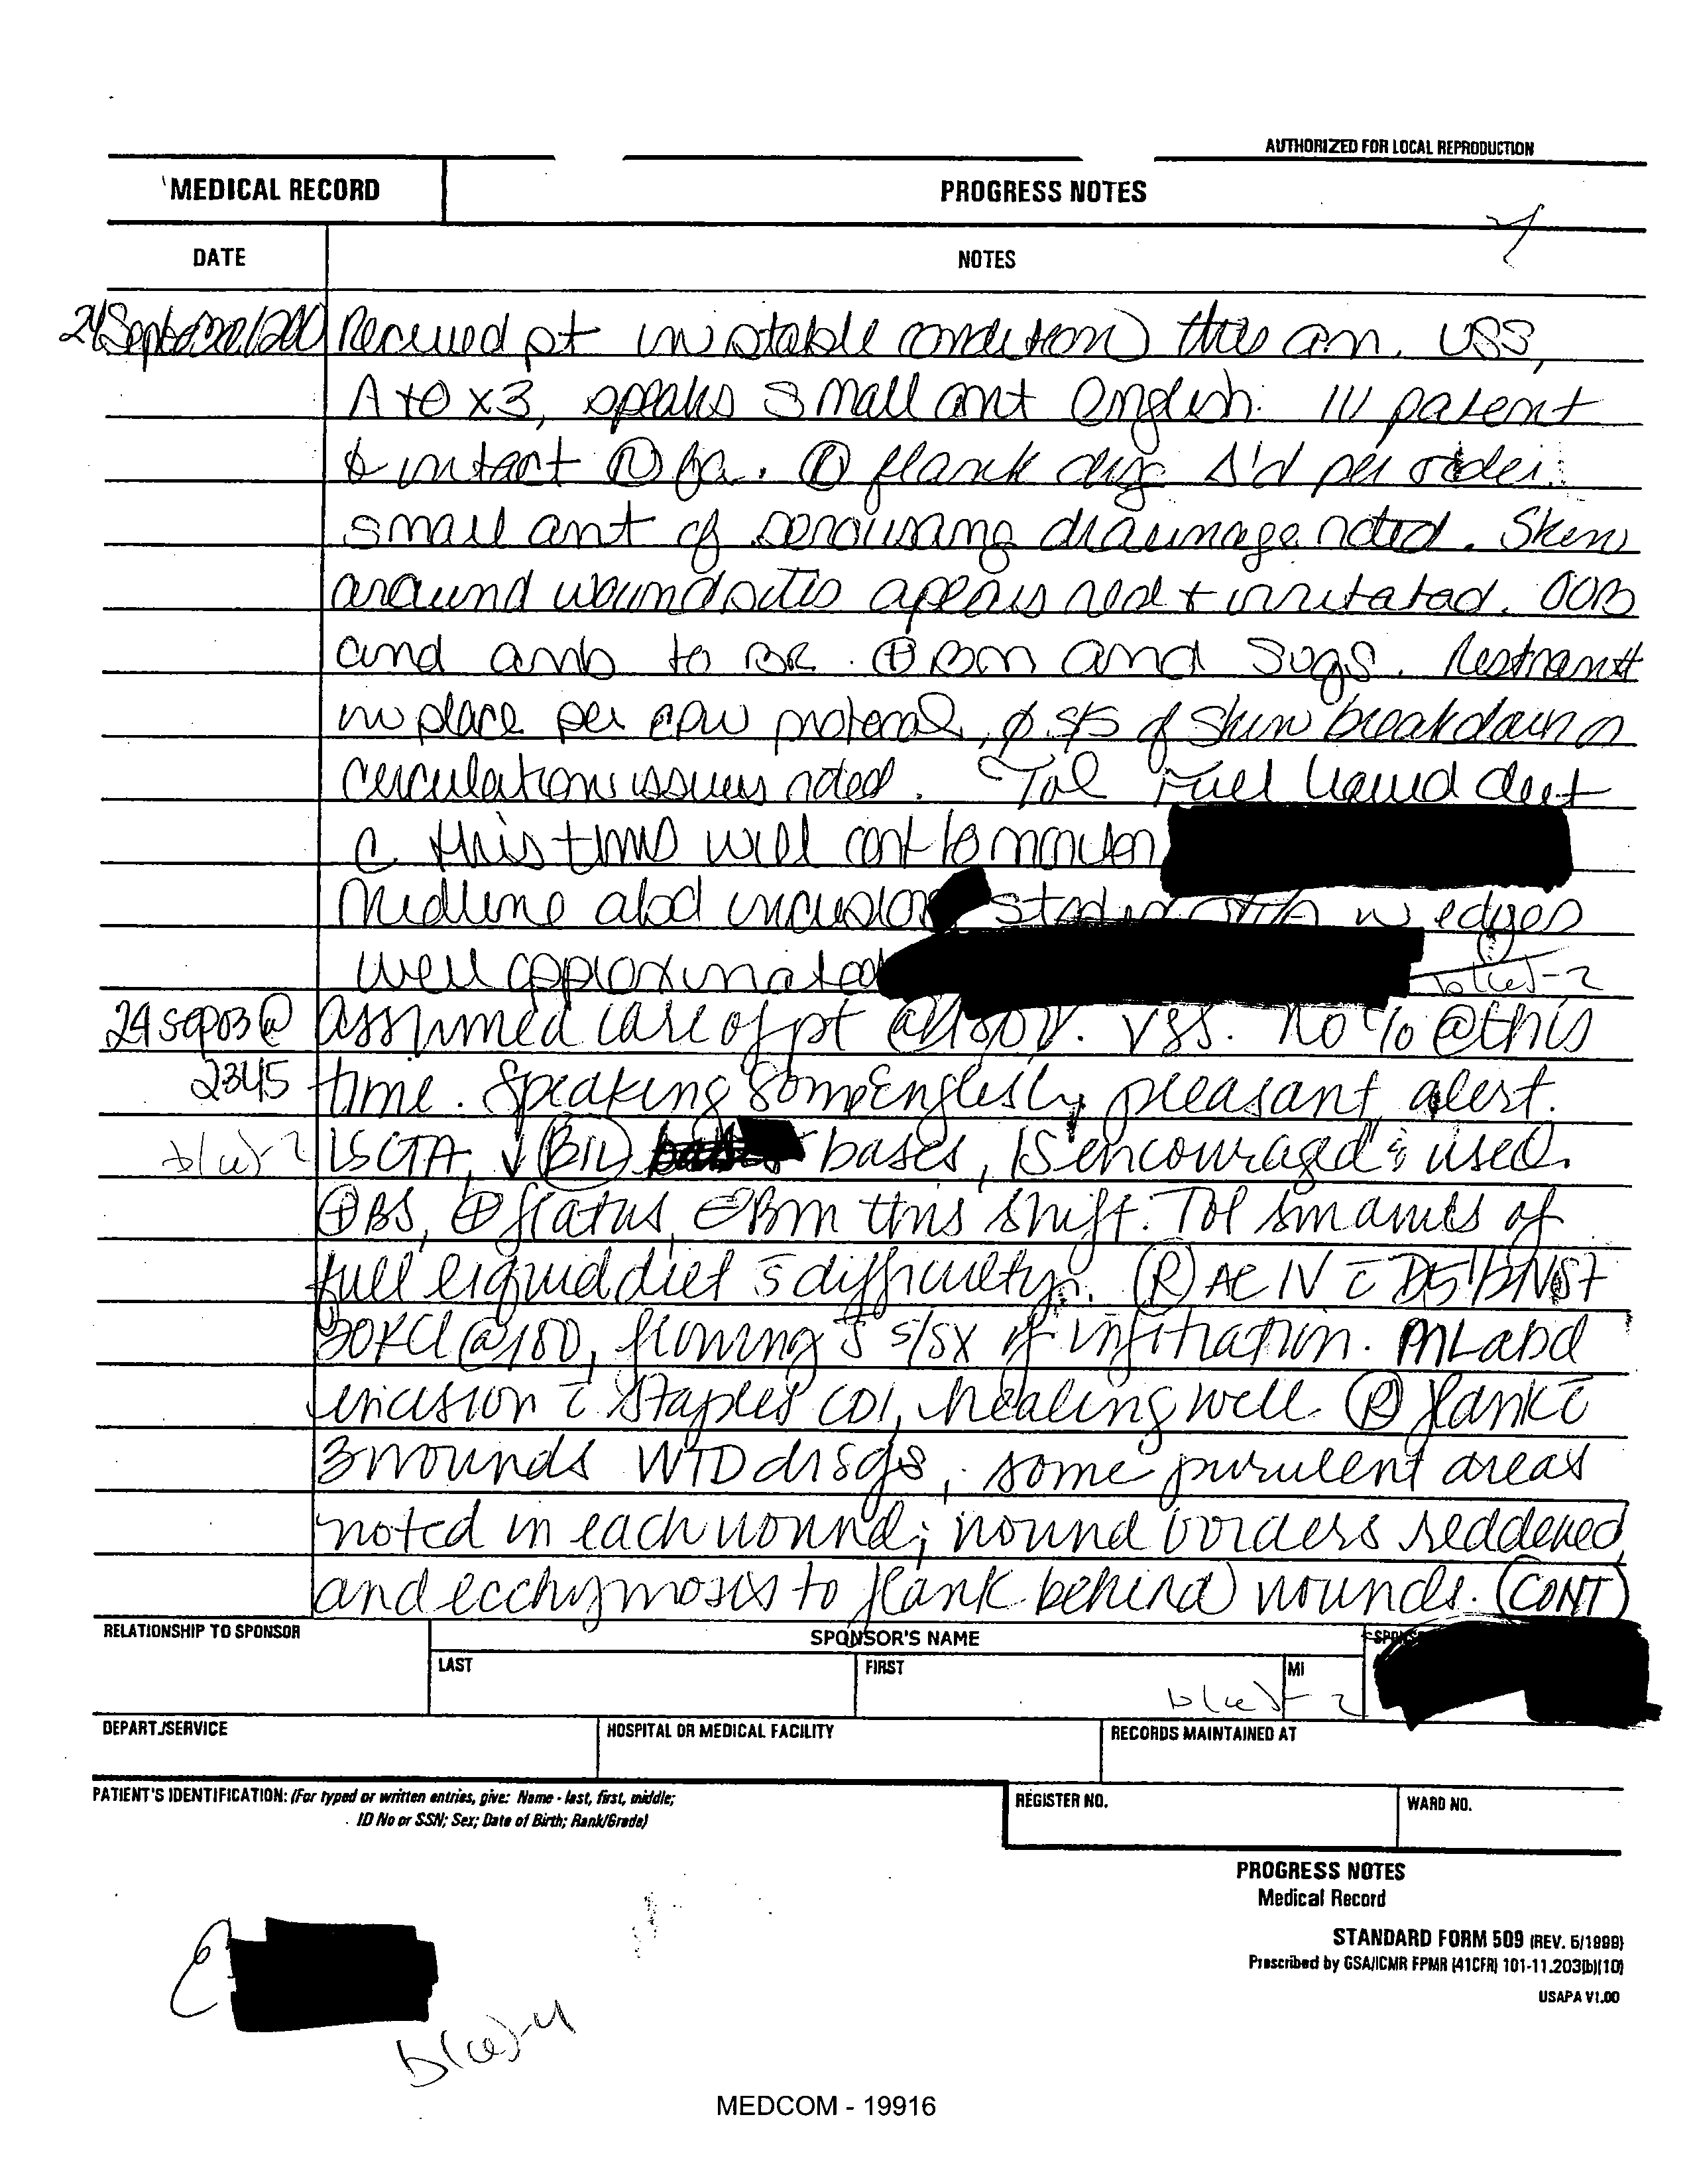 AUTHORIZED FOR LOCAL REPRODUCTION
MEDICAL RECORD PROGRESS NOTES
DATE NOTES
Received pt in stable condition this am. VSS,
A+O x3, speaks small amt English. IV patent
& intact fa. flank drsg Δ'd per order.
small amt of serousang drainage noted. Skin
around wound sites appears red + irritated. OOB
and amb to BR. ⊕ BM and . Restraint
in place per EPW protocol, ∅ s/s of skin breakdown
circulation issues noted. Tol Full liquid diet
@ this time will cont to monitor
Midline abd incision w edges
well approximated b(6)-2
24 Sep 03 @ assumed care of pt @ . VSS. No c/o @ this
2345 time. Speaking some English, pleasant, alert.
b(6)-2 LSCTA, ↓ (Bil) bases, IS encouraged & used.
⊕BS, ⊕flatus, ⊖BM this shift. Tol sm amts of
full liquid diet s̄ difficulty. (R) AC IV c̄ D5 1/2NS+
20KCl @ , flowing s̄ s/sx of infiltration. ML abd
incision c̄ staples CDI, healing well. (R) flank c̄
3 wounds WTD drsgs, some purulent areas
noted in each wound; wound borders reddened,
and ecchymosis to flank behind wounds. (CONT)
RELATIONSHIP TO SPONSOR SPONSOR'S NAME
LAST FIRST MI
b(6)-2
DEPART./SERVICE HOSPITAL OR MEDICAL FACILITY RECORDS MAINTAINED AT
PATIENT'S IDENTIFICATION: (For typed or written entries, give: Name - last, first, middle;
ID No or SSN; Sex; Date of Birth; Rank/Grade)
REGISTER NO. WARD NO.
PROGRESS NOTES
Medical Record
STANDARD FORM 509 (REV. 5/1999)
Prescribed by GSA/ICMR FPMR (41CFR) 101-11.203(b)(10)
USAPA V1.00
b(6)-4
MEDCOM - 19916